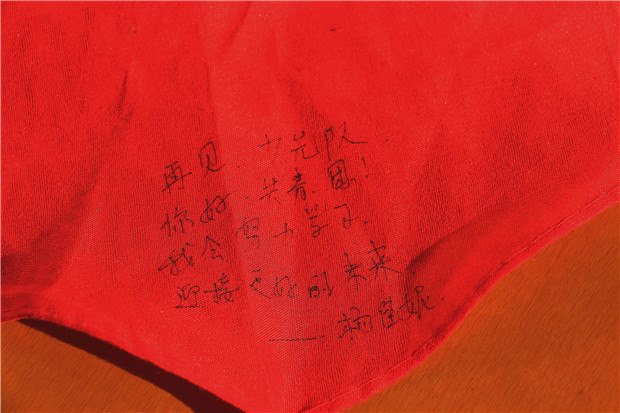 再见.少先队.
你好.共青团!
我会努力学习.
迎接更好的未来
——杨